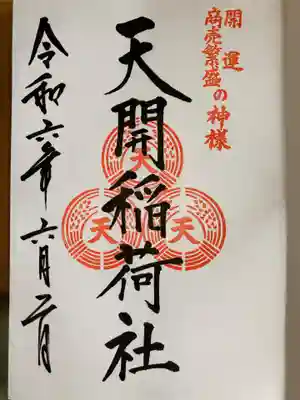 開運
商売繁盛の神様
天開稲荷社
天
天
天
令和六年六月二日